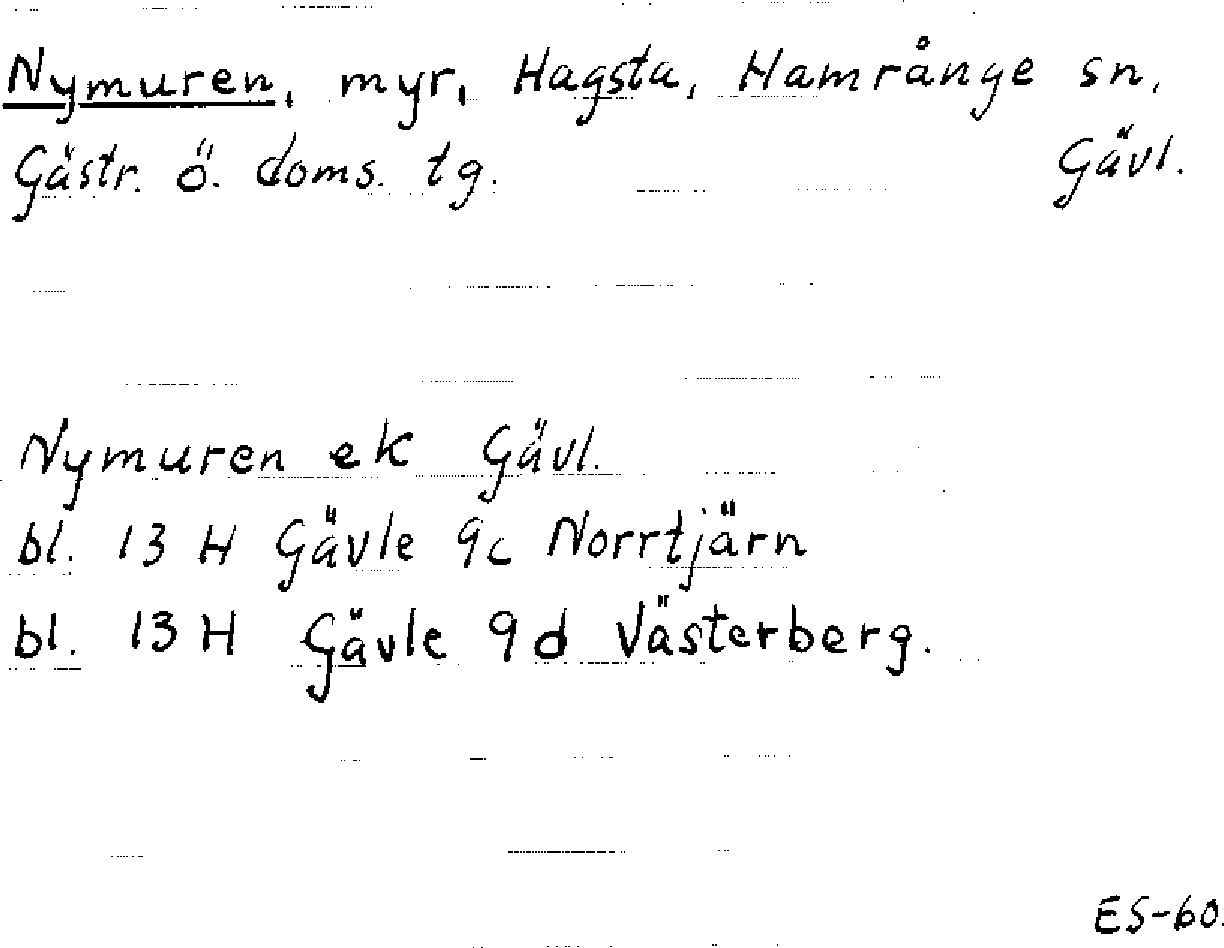 Nymuren, myr, Hagsta, Hamrånge sn,
Gästr. ö. doms. tg. Gävl.
Nymuren ek Gävl.
bl. 13 H Gävle 9c Norrtjärn
bl. 13 H Gävle 9d Västerberg.
ES-60.